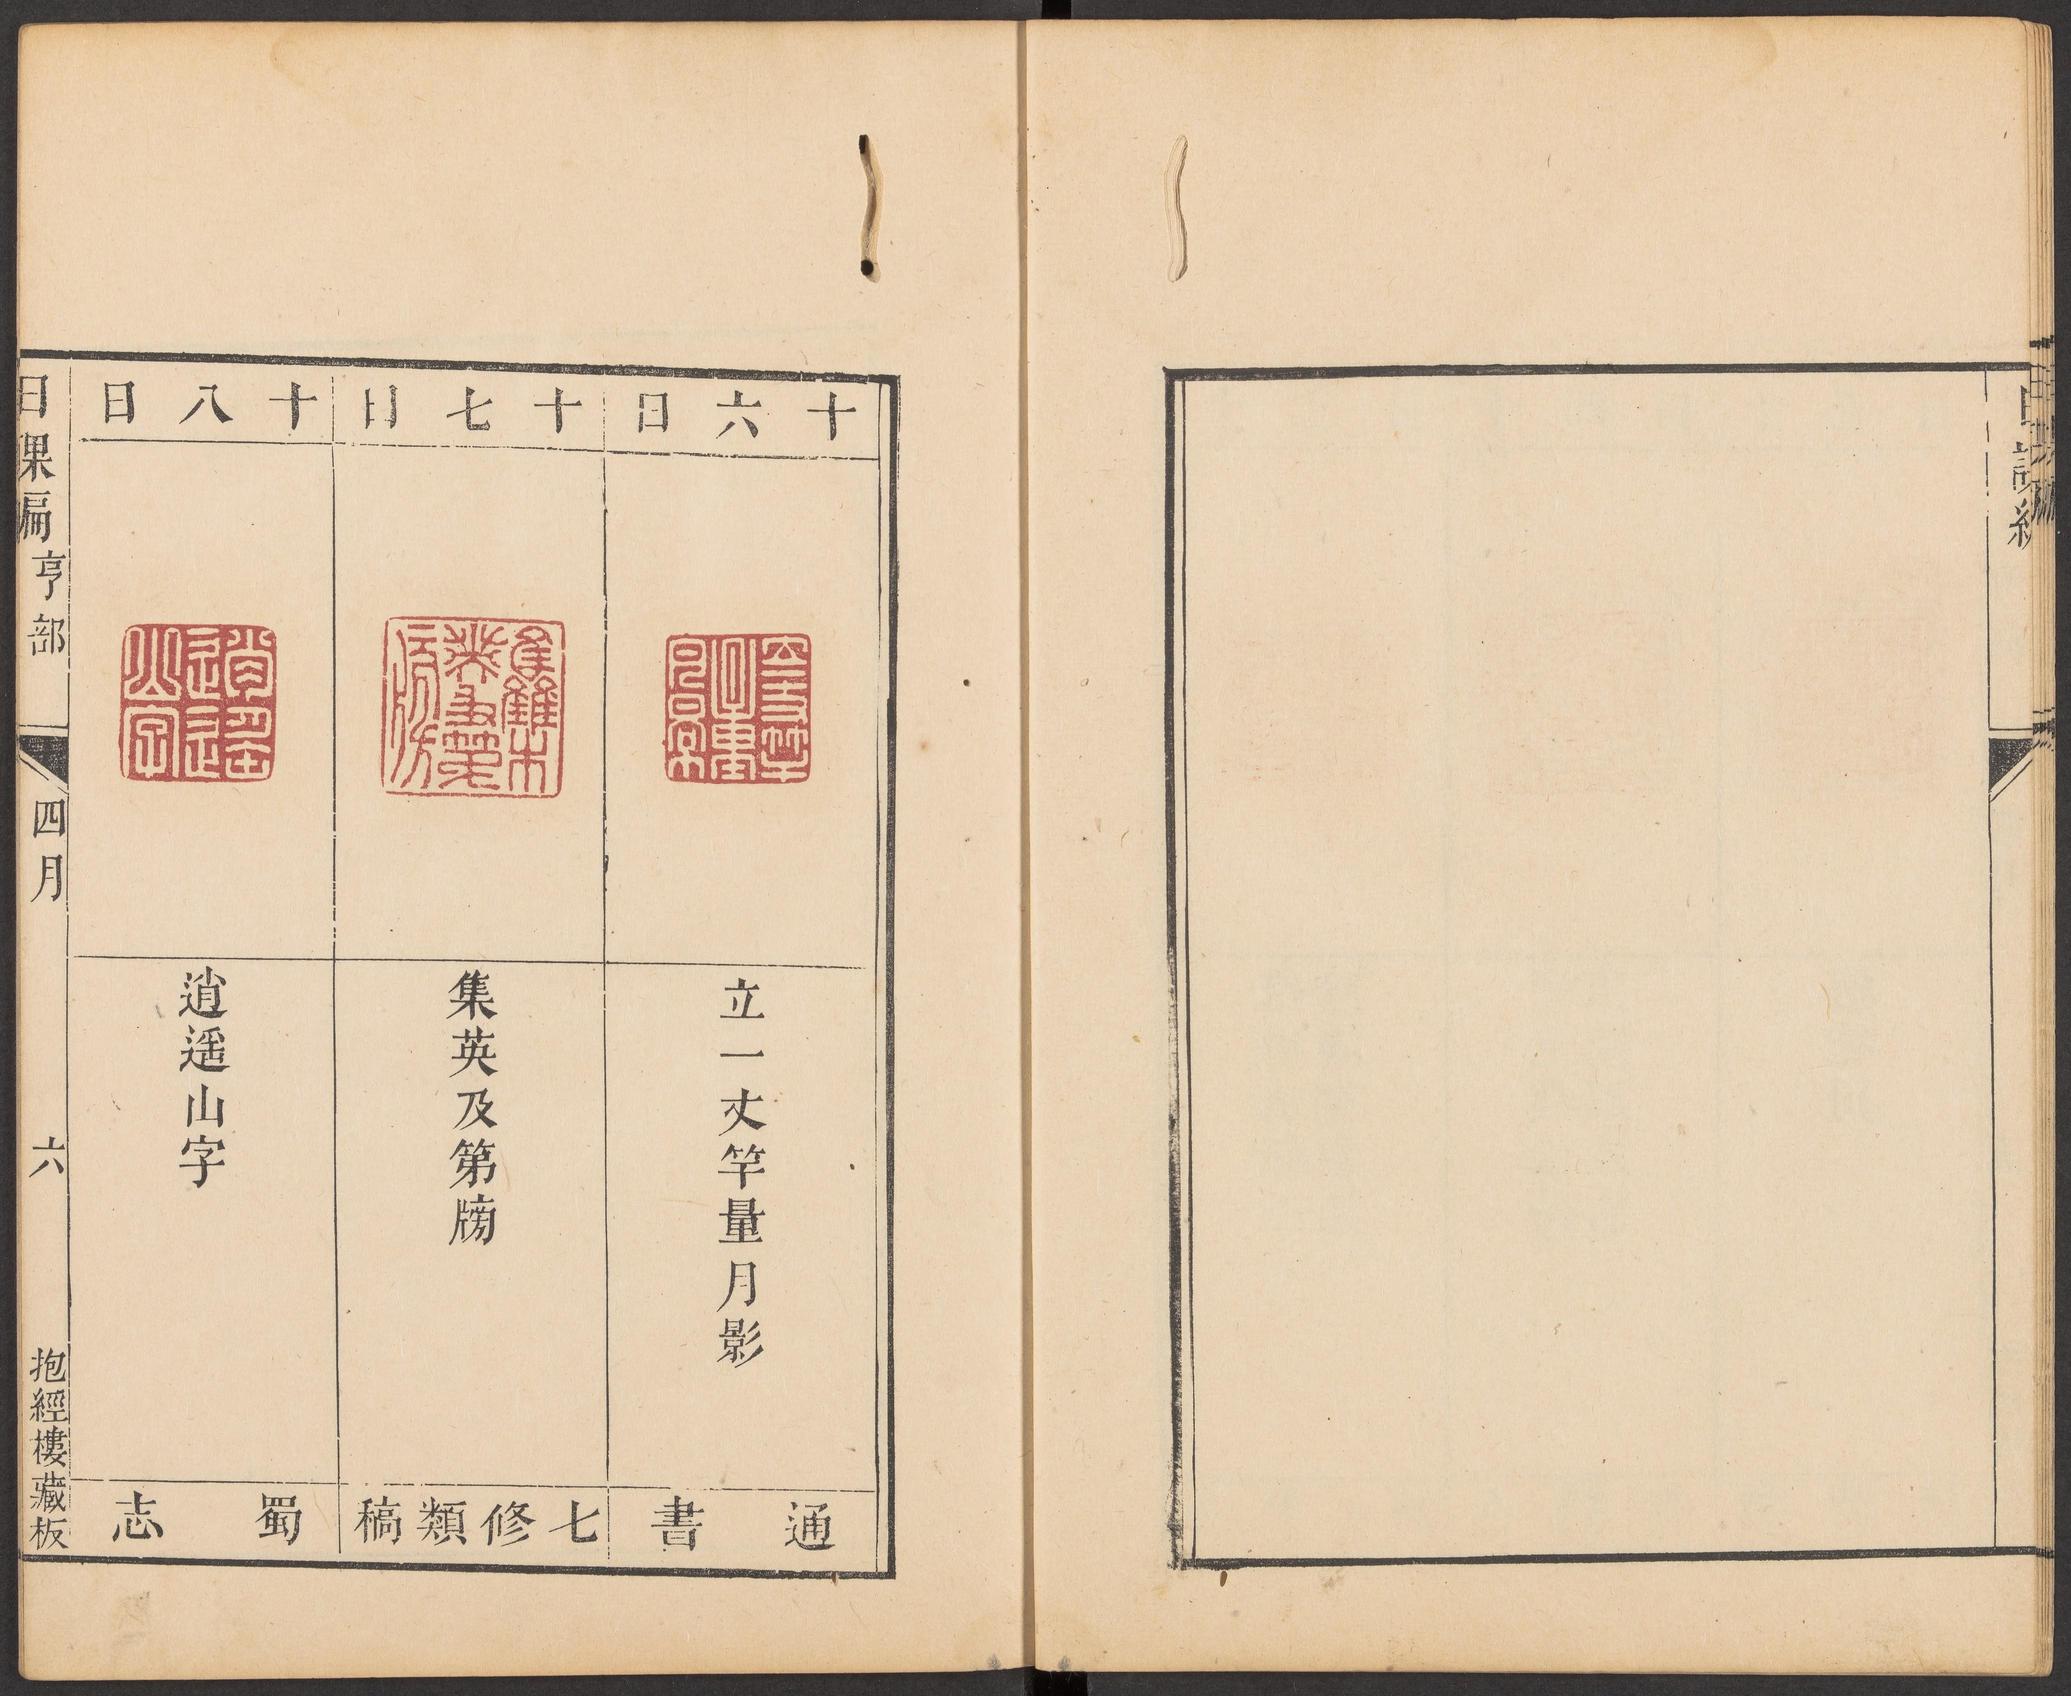 日課編
十六日
立一丈竿量月影
通書
十七日
集英及第牓
七修類稿
十八日
逍遥山字
蜀志
日課編亨部
四月
六
抱經樓藏板